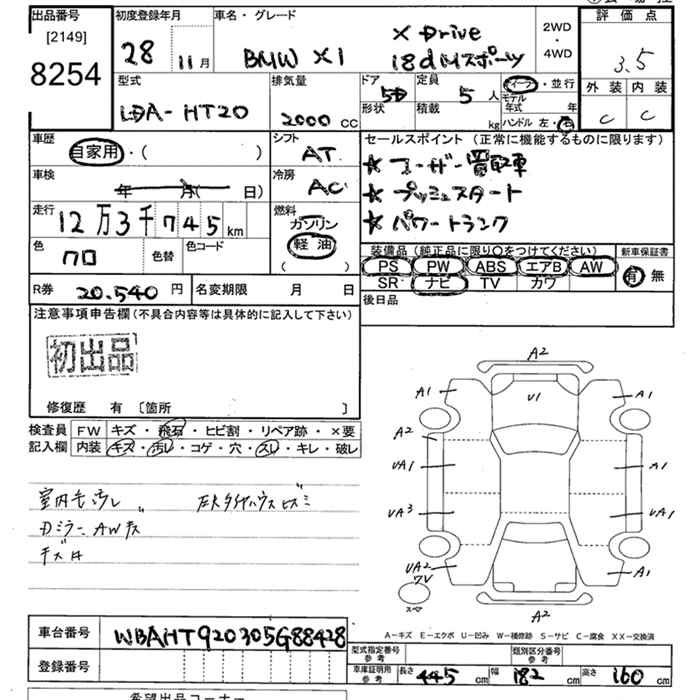 出品番号 初度登録年月 車名・グレード 評価点
[2149]
8254
28 11月 BMW X1 X Drive 18d Mスポーツ 2WD・4WD 3.5
型式 排気量 ドア 5D 定員 5人 ディーラ・並行 外装 内装
LDA-HT20 2000cc 形状 積載 kg モデル年式 年 C C
ハンドル 左・右
車歴 自家用・( ) シフト AT セールスポイント (正常に機能するものに限ります)
★ユーザー買取車
車検 年 月( 日) 冷房 AC ★プッシュスタート
走行 12万3千745km 燃料 ガソリン ★パワートランク
色 クロ 色替 色コード 軽油 ( )
装備品 (純正品に限り○をつけてください) 新車保証書
PS PW ABS エアB AW 有 無
SR ナビ TV カワ
R券 20.540円 名変期限 月 日 後日品
注意事項申告欄(不具合内容等は具体的に記入して下さい)
初出品
修復歴 有 [箇所 ]
検査員 FW キズ・飛石・ヒビ割・リペア跡・×要
記入欄 内装 キズ・汚レ・コゲ・穴・スレ・キレ・破レ
A2
A1 U1 A1
A2
UA1 A1
UA3 UA1
UA2 7V A1
スペア
A2
A-キズ E-エクボ U-凹み W-補修跡 S-サビ C-腐食 XX-交換済
車台番号 WBAHT920305G88428
登録番号
型式指定番号 参考 類別区分番号 参考
車庫証明用 参考 長さ 445cm 幅 182cm 高さ 160cm
希望出品コーナー